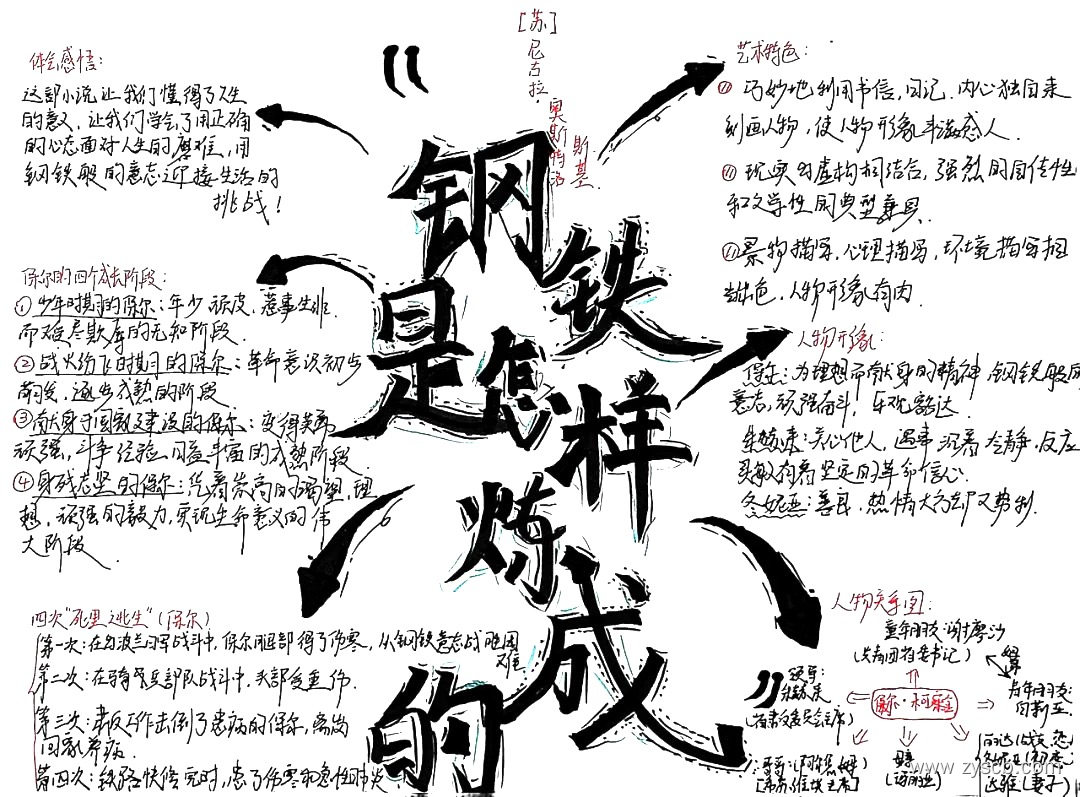 [苏]
尼古拉·
奥斯特洛
斯基
"钢铁是怎样炼成的"
体会感悟:
这部小说让我们懂得了人生
的意义,让我们学会了用正确
的心态面对人生的磨难,用
钢铁般的意志迎接生活的
挑战!
保尔的四个成长阶段:
①少年时期的保尔:年少顽皮,惹事生非
而难尽欺辱的无知阶段.
②战火纷飞时期的保尔:革命意识初步
萌发,逐步成熟的阶段
③献身于国家建设的保尔:变得英勇
顽强,斗争经验日益丰富的成熟阶段
④身残志坚的保尔:凭着崇高的渴望,理
想,顽强的毅力,实现生命意义的伟
大阶段.
四次"死里逃生"(保尔)
第一次:在与波兰白军战斗中,保尔腿部得了伤寒,从钢铁意志战胜困
难
第二次:在骑兵部队战斗中,头部受重伤.
第三次:肃反工作击倒了患病的保尔,离岗
回家养病.
第四次:铁路快修完时,患了伤寒和急性肺炎
艺术特色:
巧妙地利用书信,日记.内心独白来
刻画人物,使人物形象丰满感人.
现实与虚构相结合,强烈的自传性
和文学性的典型兼具.
景物描写,心理描写,环境描写相
当出色,人物形象有肉.
人物形象:
保尔:为理想而献身的精神 钢铁般的
意志,顽强奋斗,乐观豁达.
朱赫来:关心他人,遇事沉着冷静,反应
灵敏有着坚定的革命信心.
冬妮娅:善良,热情大方却又势利.
人物关系图:
童年朋友 谢廖沙
(共青团省委书记)
保尔·柯察金
领导:
朱赫来
www.zyscb.com